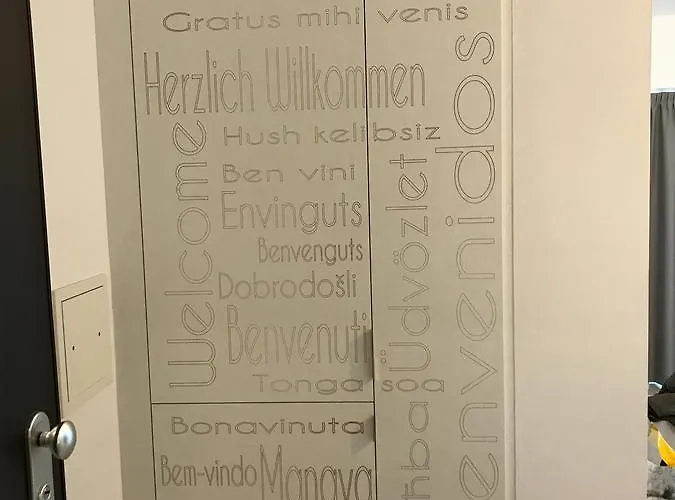 Gratus mihi venis
Herzlich Willkommen
Hush kelibsiz
Welcome
Ben vini
Envinguts
Benvenguts
Dobrodošli
Benvenuti
Tonga soa
Üdvözlet
envenidos
Bonavinuta
Bem-vindo
Manava
hba